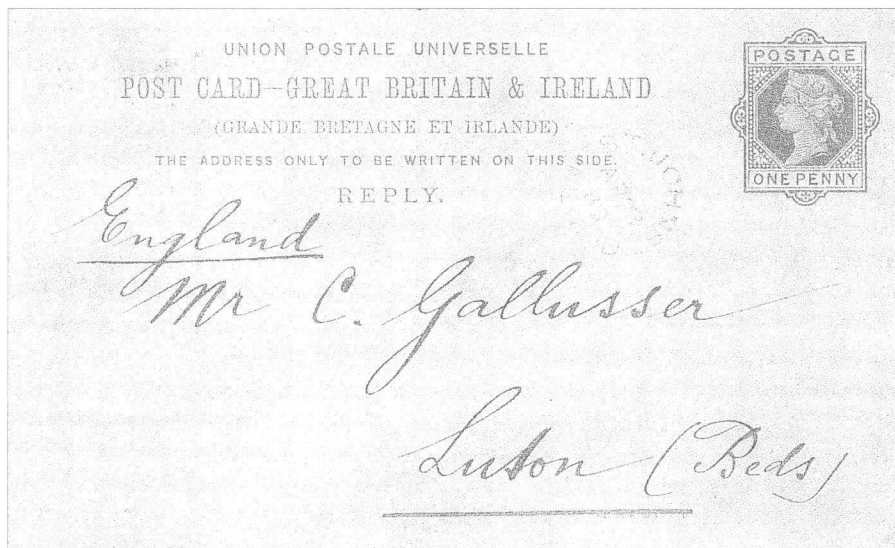 UNION POSTALE UNIVERSELLE
POST CARD—GREAT BRITAIN & IRELAND
(GRANDE BRETAGNE ET IRLANDE)
THE ADDRESS ONLY TO BE WRITTEN ON THIS SIDE.
REPLY.
POSTAGE
ONE PENNY
England
Mr C. Gallusser
Luton (Beds)